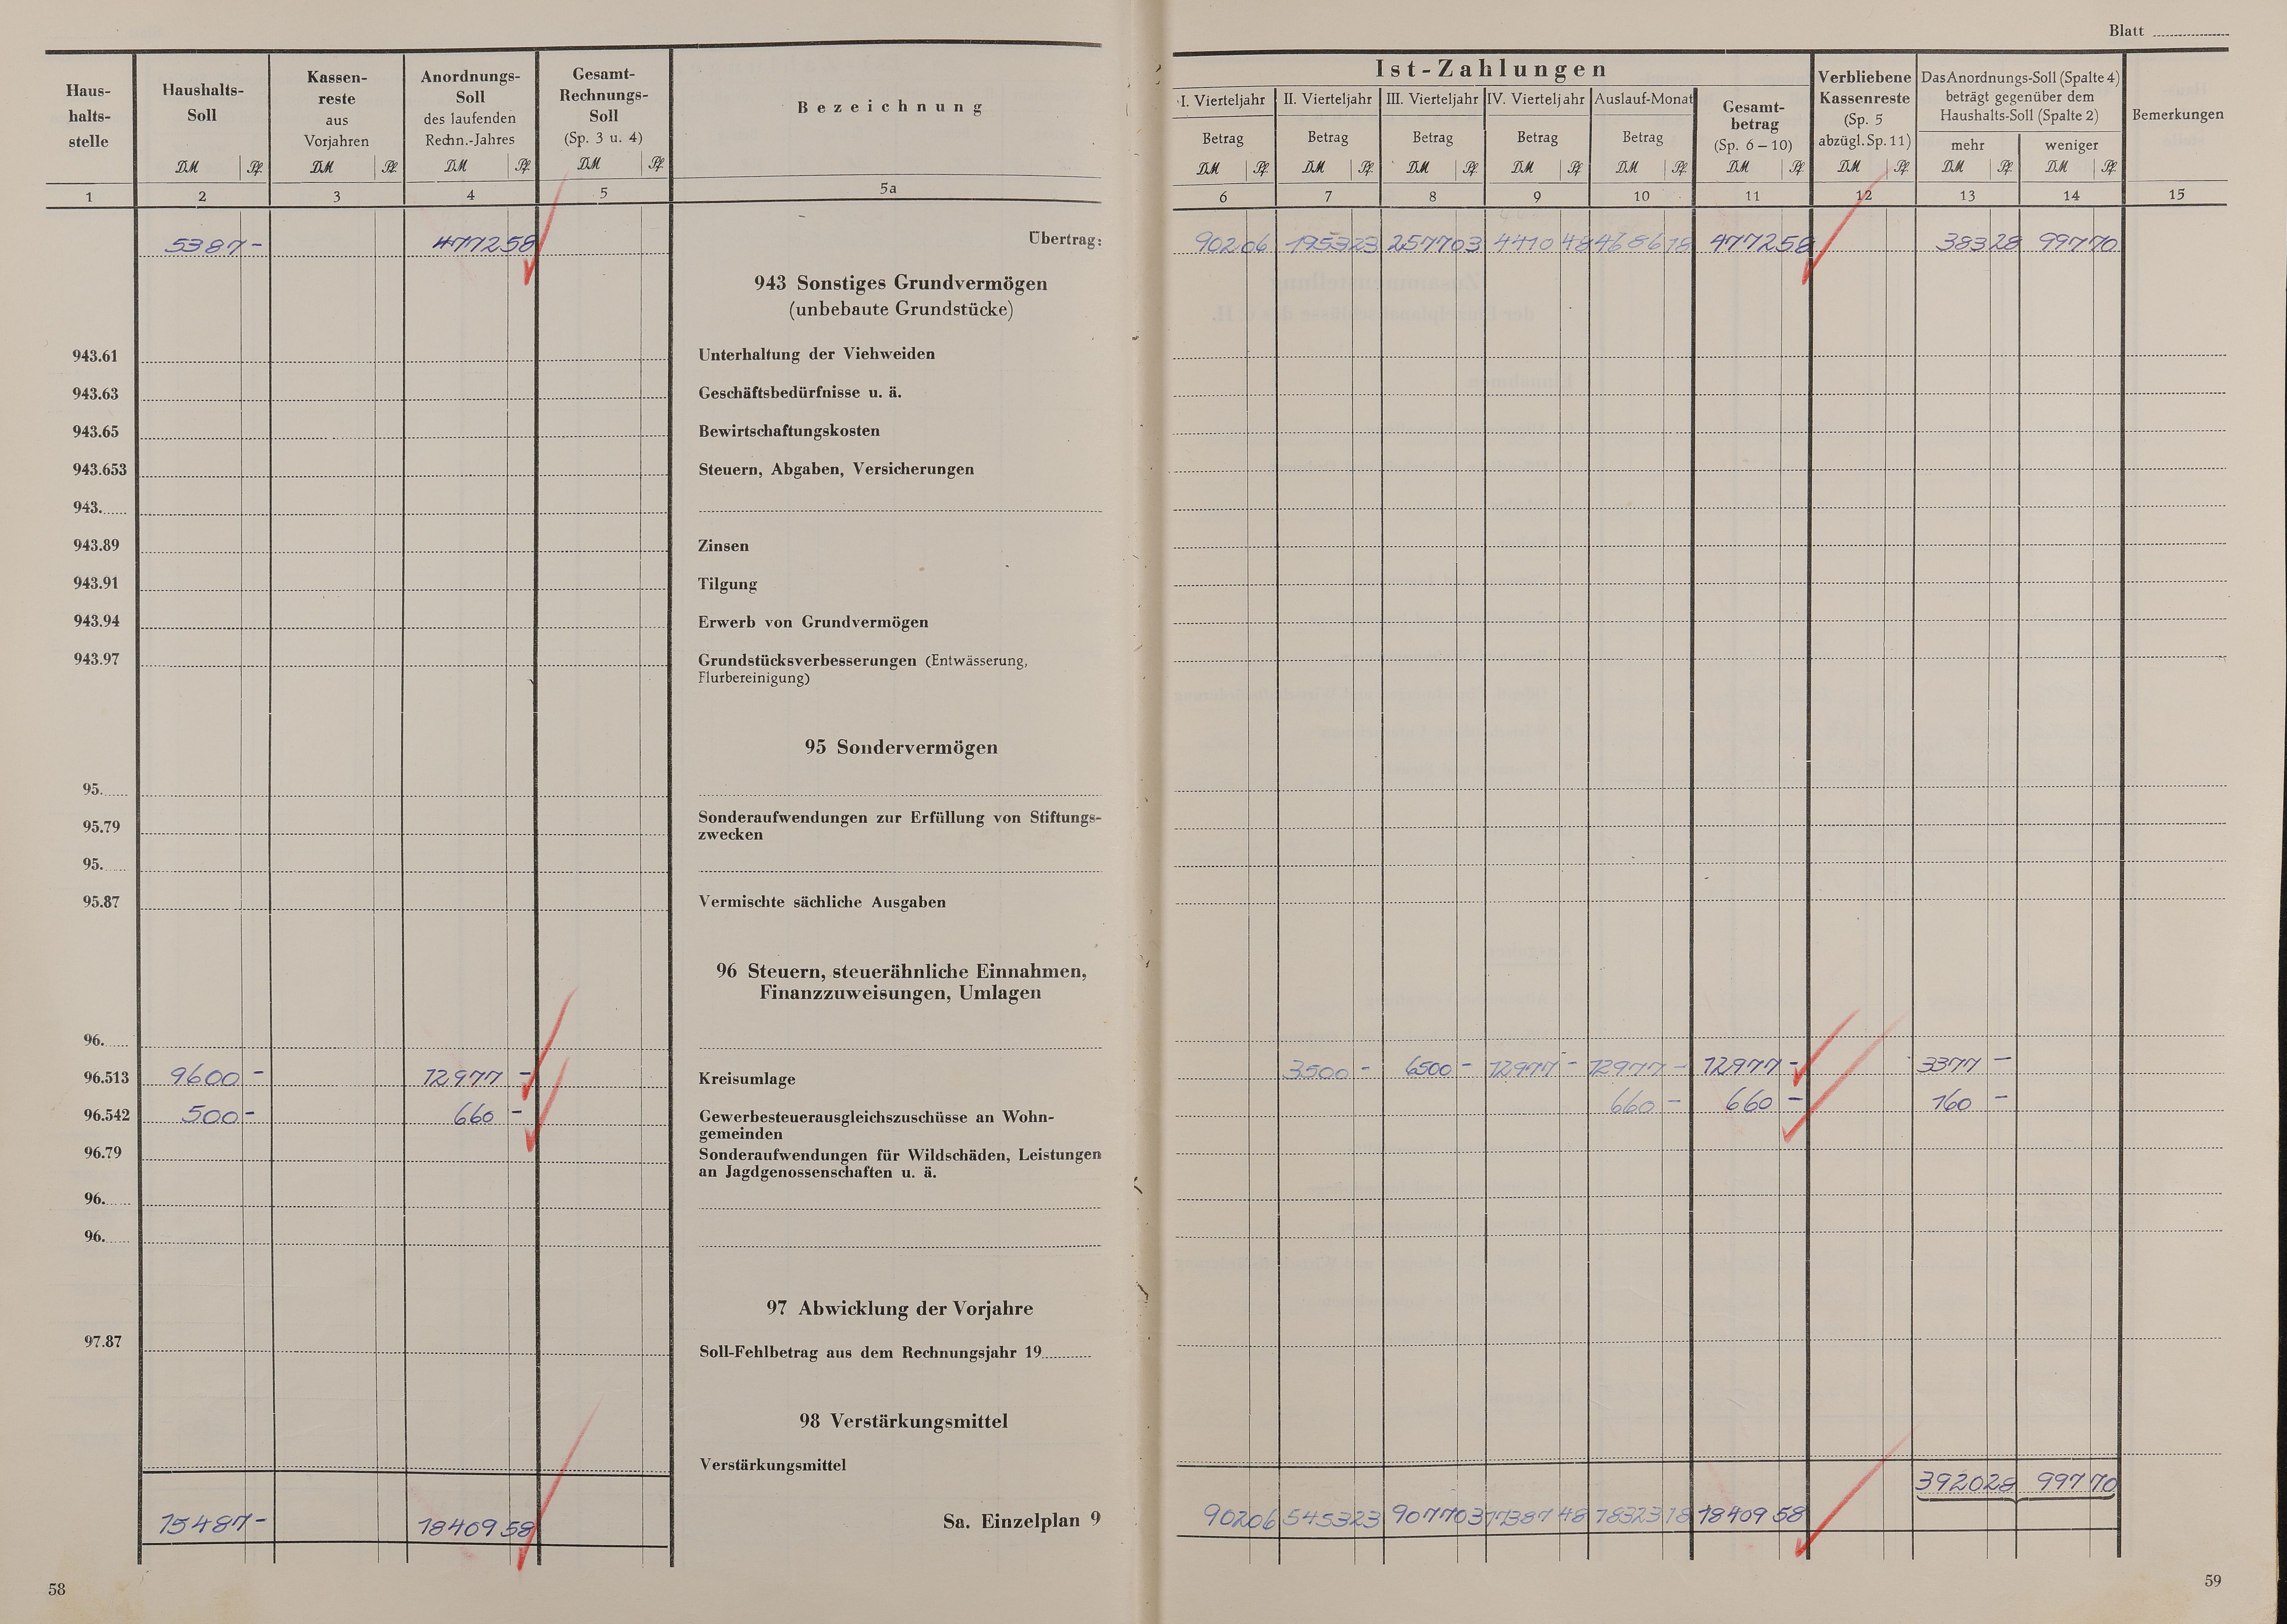 Blatt
Haus-
halts-
stelle
Haushalts-
Soll
DM Pf.
Kassen-
reste
aus
Vorjahren
DM Pf.
Anordnungs-
Soll
des laufenden
Rechn.-Jahres
DM Pf.
Gesamt-
Rechnungs-
Soll
(Sp. 3 u. 4)
DM Pf.
Bezeichnung
Ist-Zahlungen
I. Vierteljahr II. Vierteljahr III. Vierteljahr IV. Vierteljahr Auslauf-Monat
Betrag Betrag Betrag Betrag Betrag
DM Pf. DM Pf. DM Pf. DM Pf. DM Pf.
Gesamt-
betrag
(Sp. 6 – 10)
DM Pf.
Verbliebene
Kassenreste
(Sp. 5
abzügl. Sp. 11)
DM Pf.
Das Anordnungs-Soll (Spalte 4)
beträgt gegenüber dem
Haushalts-Soll (Spalte 2)
mehr weniger
DM Pf. DM Pf.
Bemerkungen
1 2 3 4 5 5a 6 7 8 9 10 11 12 13 14 15
5387 – 4772 58 Übertrag: 902 06 1953 23 2577 03 4410 48 4686 18 4772 58 383 28 997 70
943 Sonstiges Grundvermögen
(unbebaute Grundstücke)
943.61 Unterhaltung der Viehweiden
943.63 Geschäftsbedürfnisse u. ä.
943.65 Bewirtschaftungskosten
943.653 Steuern, Abgaben, Versicherungen
943.
943.89 Zinsen
943.91 Tilgung
943.94 Erwerb von Grundvermögen
943.97 Grundstücksverbesserungen (Entwässerung,
Flurbereinigung)
95 Sondervermögen
95.
95.79 Sonderaufwendungen zur Erfüllung von Stiftungs-
zwecken
95.
95.87 Vermischte sächliche Ausgaben
96 Steuern, steuerähnliche Einnahmen,
Finanzzuweisungen, Umlagen
96.
96.513 9600 – 12977 – Kreisumlage 3500 – 6500 – 12977 – 12977 – 12977 – 3377 –
96.542 500 – 660 – Gewerbesteuerausgleichszuschüsse an Wohn- 660 – 660 – 160 –
gemeinden
96.79 Sonderaufwendungen für Wildschäden, Leistungen
an Jagdgenossenschaften u. ä.
96.
96.
97 Abwicklung der Vorjahre
97.87 Soll-Fehlbetrag aus dem Rechnungsjahr 19
98 Verstärkungsmittel
Verstärkungsmittel
3920 28 997 70
15487 – 18409 58 Sa. Einzelplan 9 902 06 5453 23 9077 03 17387 48 18323 18 18409 58
58
59